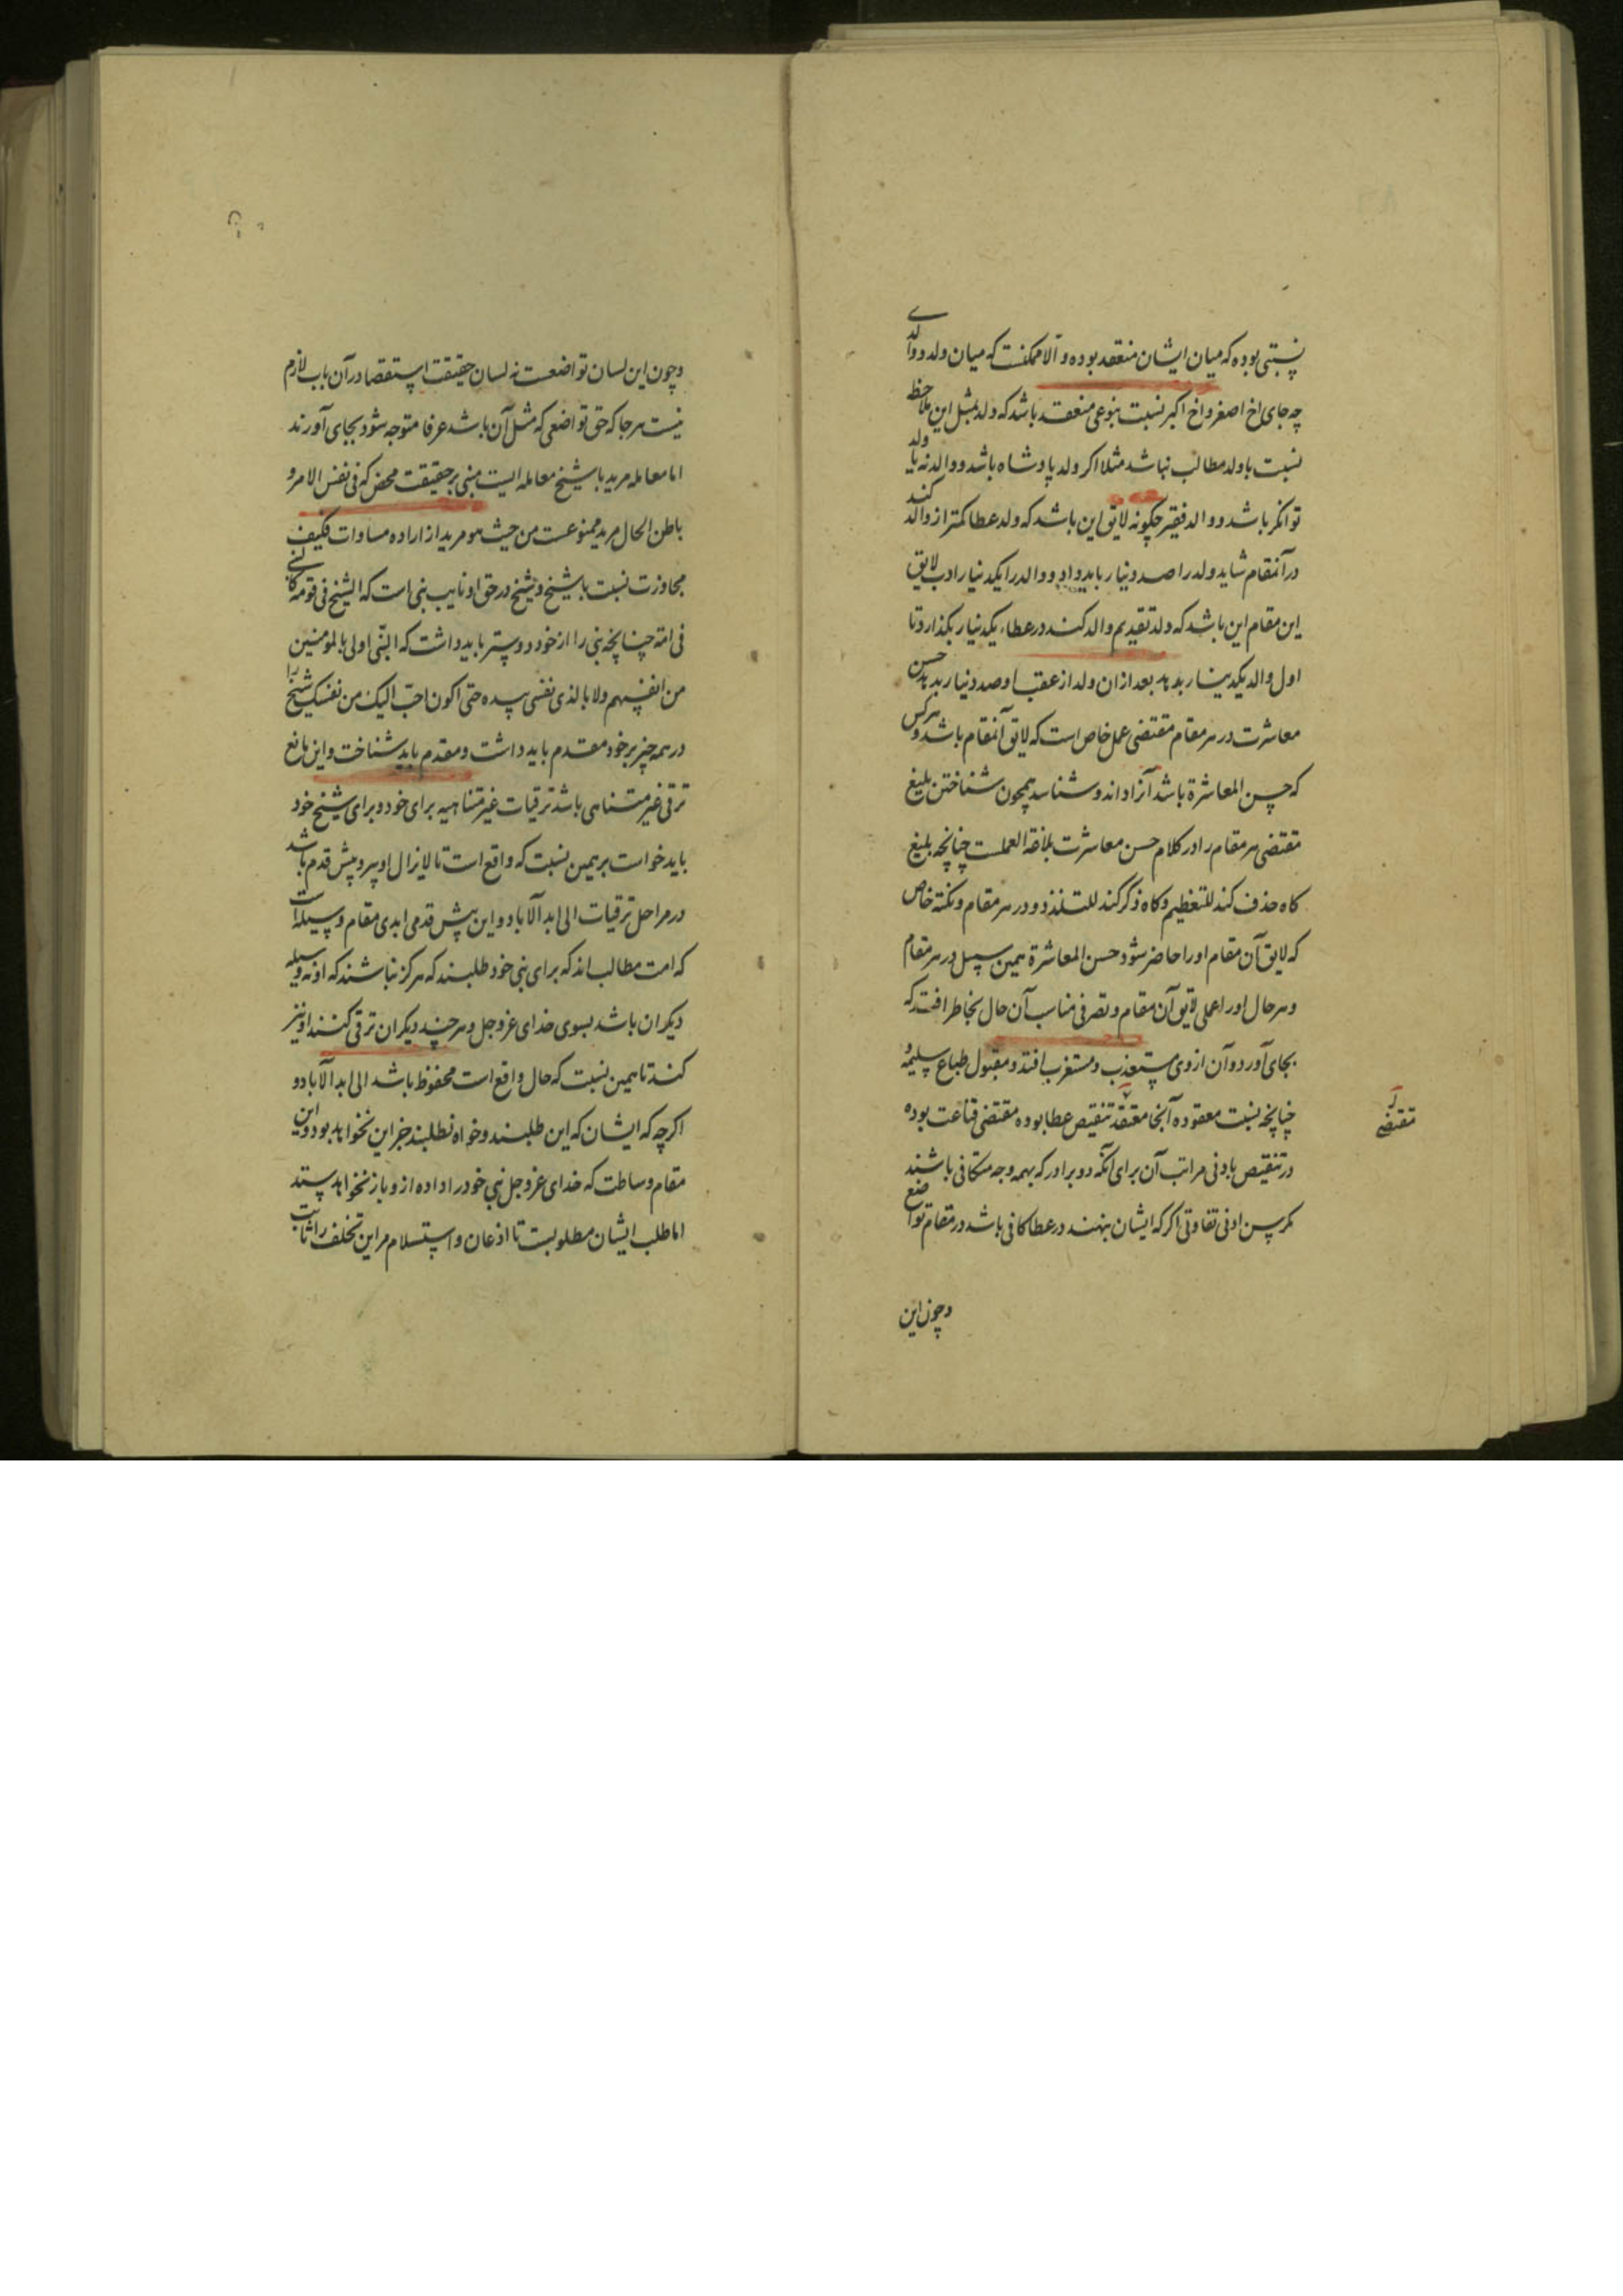 نسبتی بوده که میان ایشان منعقد بوده و الا ممکنست که میان ولد و والدی
چه جای اخ اصغر و اخ اکبر نسبت بنوعی منعقد باشد که ولد بمثل این ملاحظ
نسبت با ولد مطالب نباشد مثلا اکر ولد پادشاه باشد و والد نه یا ولد
توانکر باشد و والد فقیر چکونه لایق این باشد که ولد عطا کمتر از والد کند
در آنمقام شاید ولد را صد دینار باید داد و والد را یکدینار ادب لایق
این مقام این باشد که ولد تقدیم والد کند در عطاء یکدینار بکذارد تا
اول والد یکدینار بدهد بعد از ان ولد از عقب او صد دینار بدهد حسن
معاشرت در هر مقام مقتضی عمل خاص است که لایق آنمقام باشد و هرکس
که حسن المعاشرة باشد آنرا داند و شناسد همچون شناختن بلیغ
مقتضی هر مقام را در کلام حسن معاشرت بلاغة العملست چنانچه بلیغ
کاه حذف کند للتعظیم و کاه ذکر کند للتلذذ و در هر مقام و نکته خاص
که لایق آن مقام او را حاضر شود حسن المعاشرة بهمین سبیل در هر مقام
و هر حال او را عملی لایق آن مقام و تصرفی مناسب آن حال بخاطر افتد که
بجای آورد و آن از وی مستعذب و مستغرب افتد و مقبول طباع سلیمه و
چنانچه نسبت معقوده آنجا معتقد تنقیص عطا بوده مقتضی قناعت بوده
مقتضی
در تنقیص بادنی مراتب آن برای آنکه دو برادر که بهمه وجه متکافی باشند
مکر بسن ادنی تفاوتی اکر که ایشان بنهند در عطا کافی باشد در مقام تواضع
و چون این
و چون این لسان تواضعست نه لسان حقیقت استقصا در آن باب لازم
نیست هر جا که حق تواضعی که مثل آن باشد عرفا متوجه شود بجای آورند
اما معامله مرید با شیخ معامله ایست مبنی بر حقیقت محض که فی نفس الامر و
باطن الحال مرید ممنوعست من حیث هو مرید از اراده مساوات فکیف
مجاوزت نسبت با شیخ و شیخ در حق او نایب نبی است که الشیخ فی قومه کالنبی
فی امته چنانچه نبی را از خود دوستر باید داشت که النبی اولی بالمومنین
من انفسهم و لا بالذی نفسی بیده حتی اکون احب الیک من نفسک شیخ را
در همه چیز بر خود مقدم باید داشت و مقدم باید شناخت و این مانع
ترقی غیر متناهی باشد ترقیات غیر متناهیه برای خود و برای شیخ خود
باید خواست بر همین نسبت که واقع است تا لا یزال او پیرو پیش قدم باشد
در مراحل ترقیات الی ابد الآباد و این پیش قدمی ابدی مقام وسیله است
که امت مطالب اند که برای نبی خود طلبند که هرکز نباشند که او نه وسیله
دیکران باشد بسوی خدای عز و جل و هر چند دیکران ترقی کنند او نیز
کند تا همین نسبت که حال واقع است محفوظ باشد الی ابد الآباد و
اکر چه که ایشان که این طلبند و خواه نطلبند جز این نخواهد بود و این
مقام وساطت که خدای عز و جل نبی خود را داده از و باز نخواهد ستد
اما طلب ایشان مطلوبست تا اذعان و استسلام مر این تخلف را ثابت